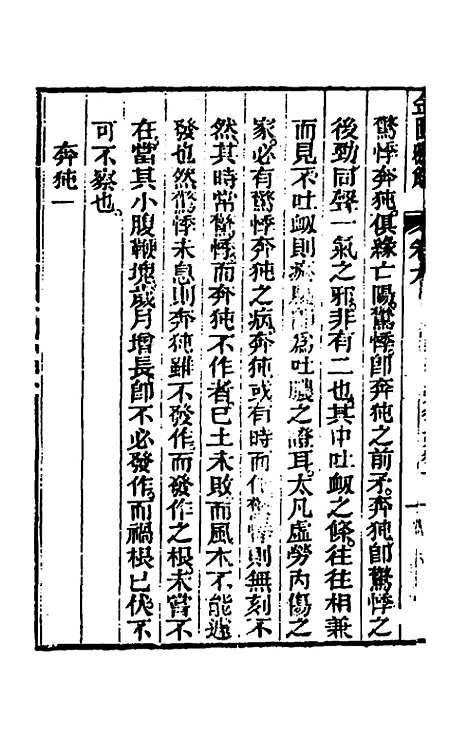 驚悸奔㹠俱緣亡陽驚悸卽奔㹠之前矛奔㹠卽驚悸之
後勁同聲一氣之邪非有二也其中吐衂之條往往相兼
而見不吐衂則爲吐膿之證耳太凡虛勞內傷之
家必有驚悸奔㹠之病奔㹠或有時而作驚悸則無刻不
然其時常驚悸而奔㹠不作者已土未敗而風木不能遽
發也然驚悸未息則奔㹠雖不發作而發作之根未嘗不
在當其小腹鞕塊歲月增長卽不必發作而禍根已伏不
可不察也
奔㹠一